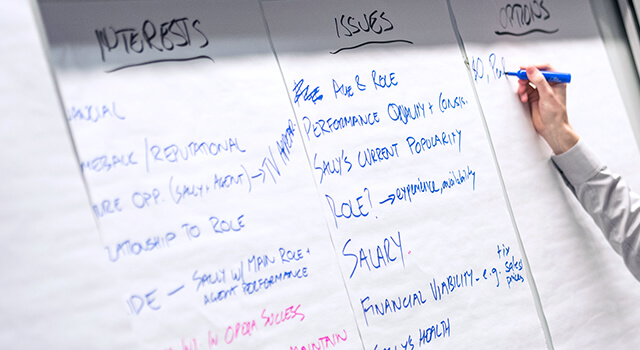 INTERESTS
REPUTATIONAL
OPP. (SALLY + AGENT) → TV
TO ROLE
SALLY W/ MAIN ROLE +
AGENT PERFORMANCE
IN OPERA SUCCESS
MAINTAIN
ISSUES
AGE & ROLE
PERFORMANCE QUALITY + CONSIS.
SALLY'S CURRENT POPULARITY
ROLE? → experience, availability
SALARY
FINANCIAL VIABILITY - e.g. tix
sales
prices
SALLY'S HEALTH
OPTIONS